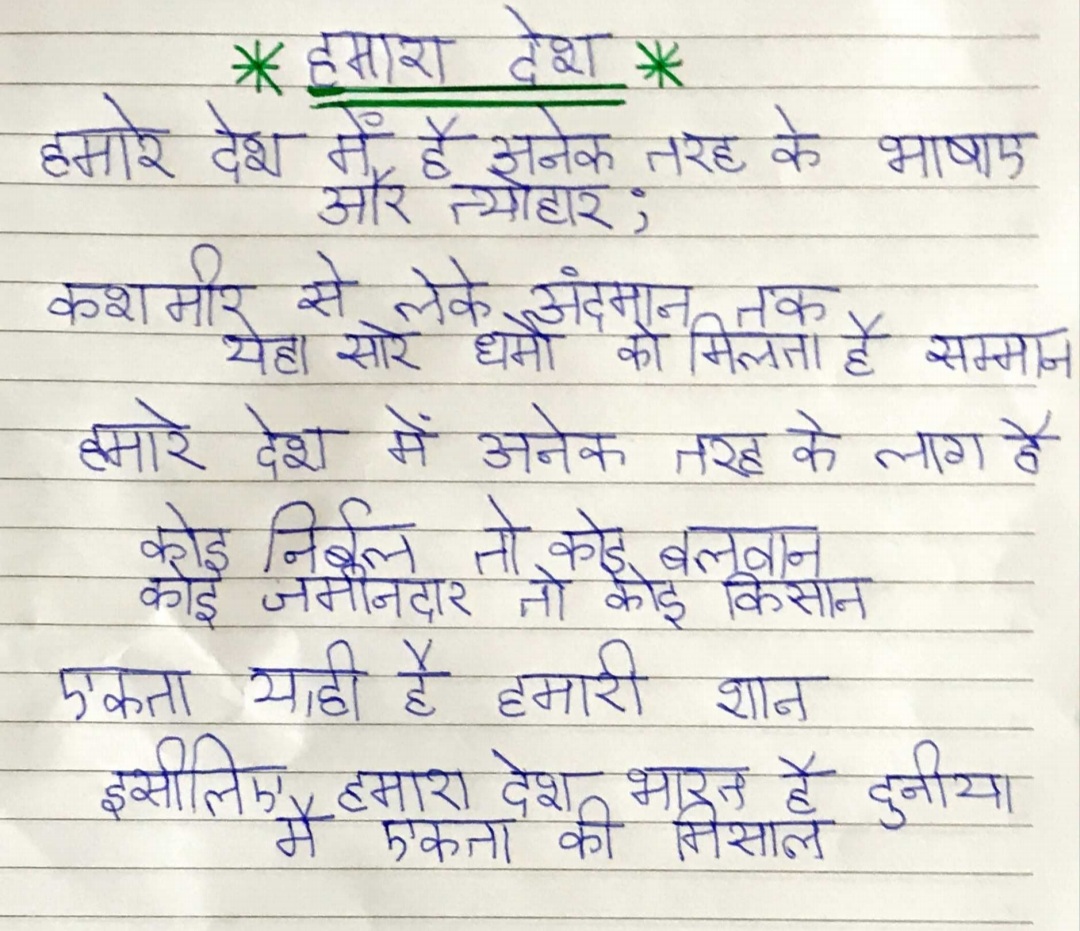 * हमारा देश *
हमारे देश में है अनेक तरह के भाषाए
और त्योहार;
कशमीर से लेके अंदमान तक
येहा सारे धर्मो को मिलता है सम्मान
हमारे देश में अनेक तरह के लाग है
कोइ निर्बल तो कोइ बलवान
कोइ जमीनदार तो कोइ किसान
एकता याही है हमारी शान
इसीलिए हमारा देश भारत है दुनीया
मै एकता की मिसाल